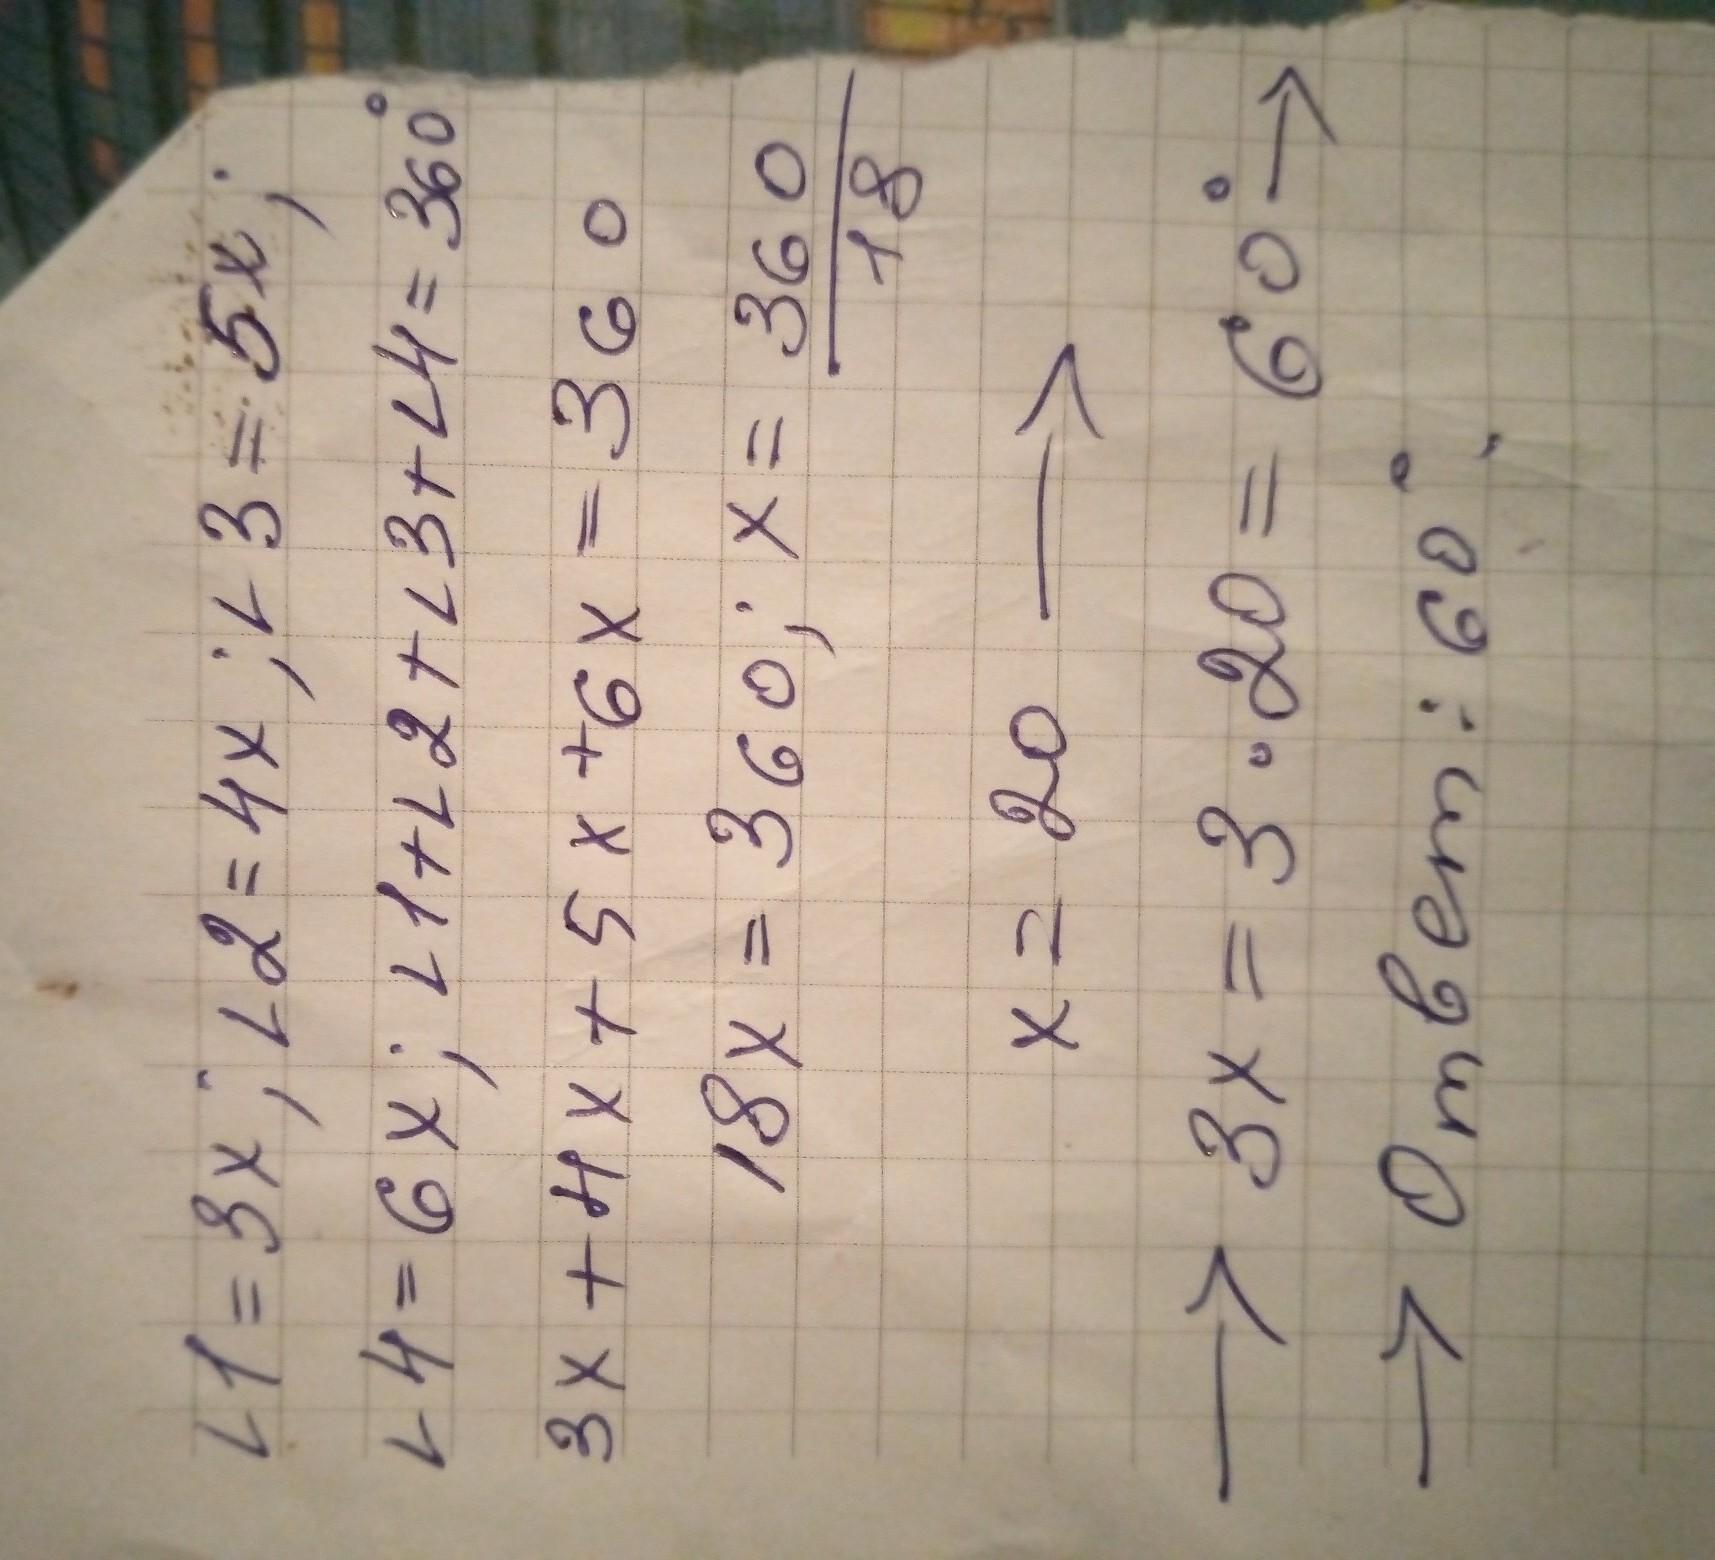 ∠1=3x; ∠2=4x; ∠3=5x;
∠4=6x; ∠1+∠2+∠3+∠4=360°
3x+4x+5x+6x=360
18x=360; x=360/18
x=20 →
→ 3x=3·20=60° →
→ Ответ: 60°,